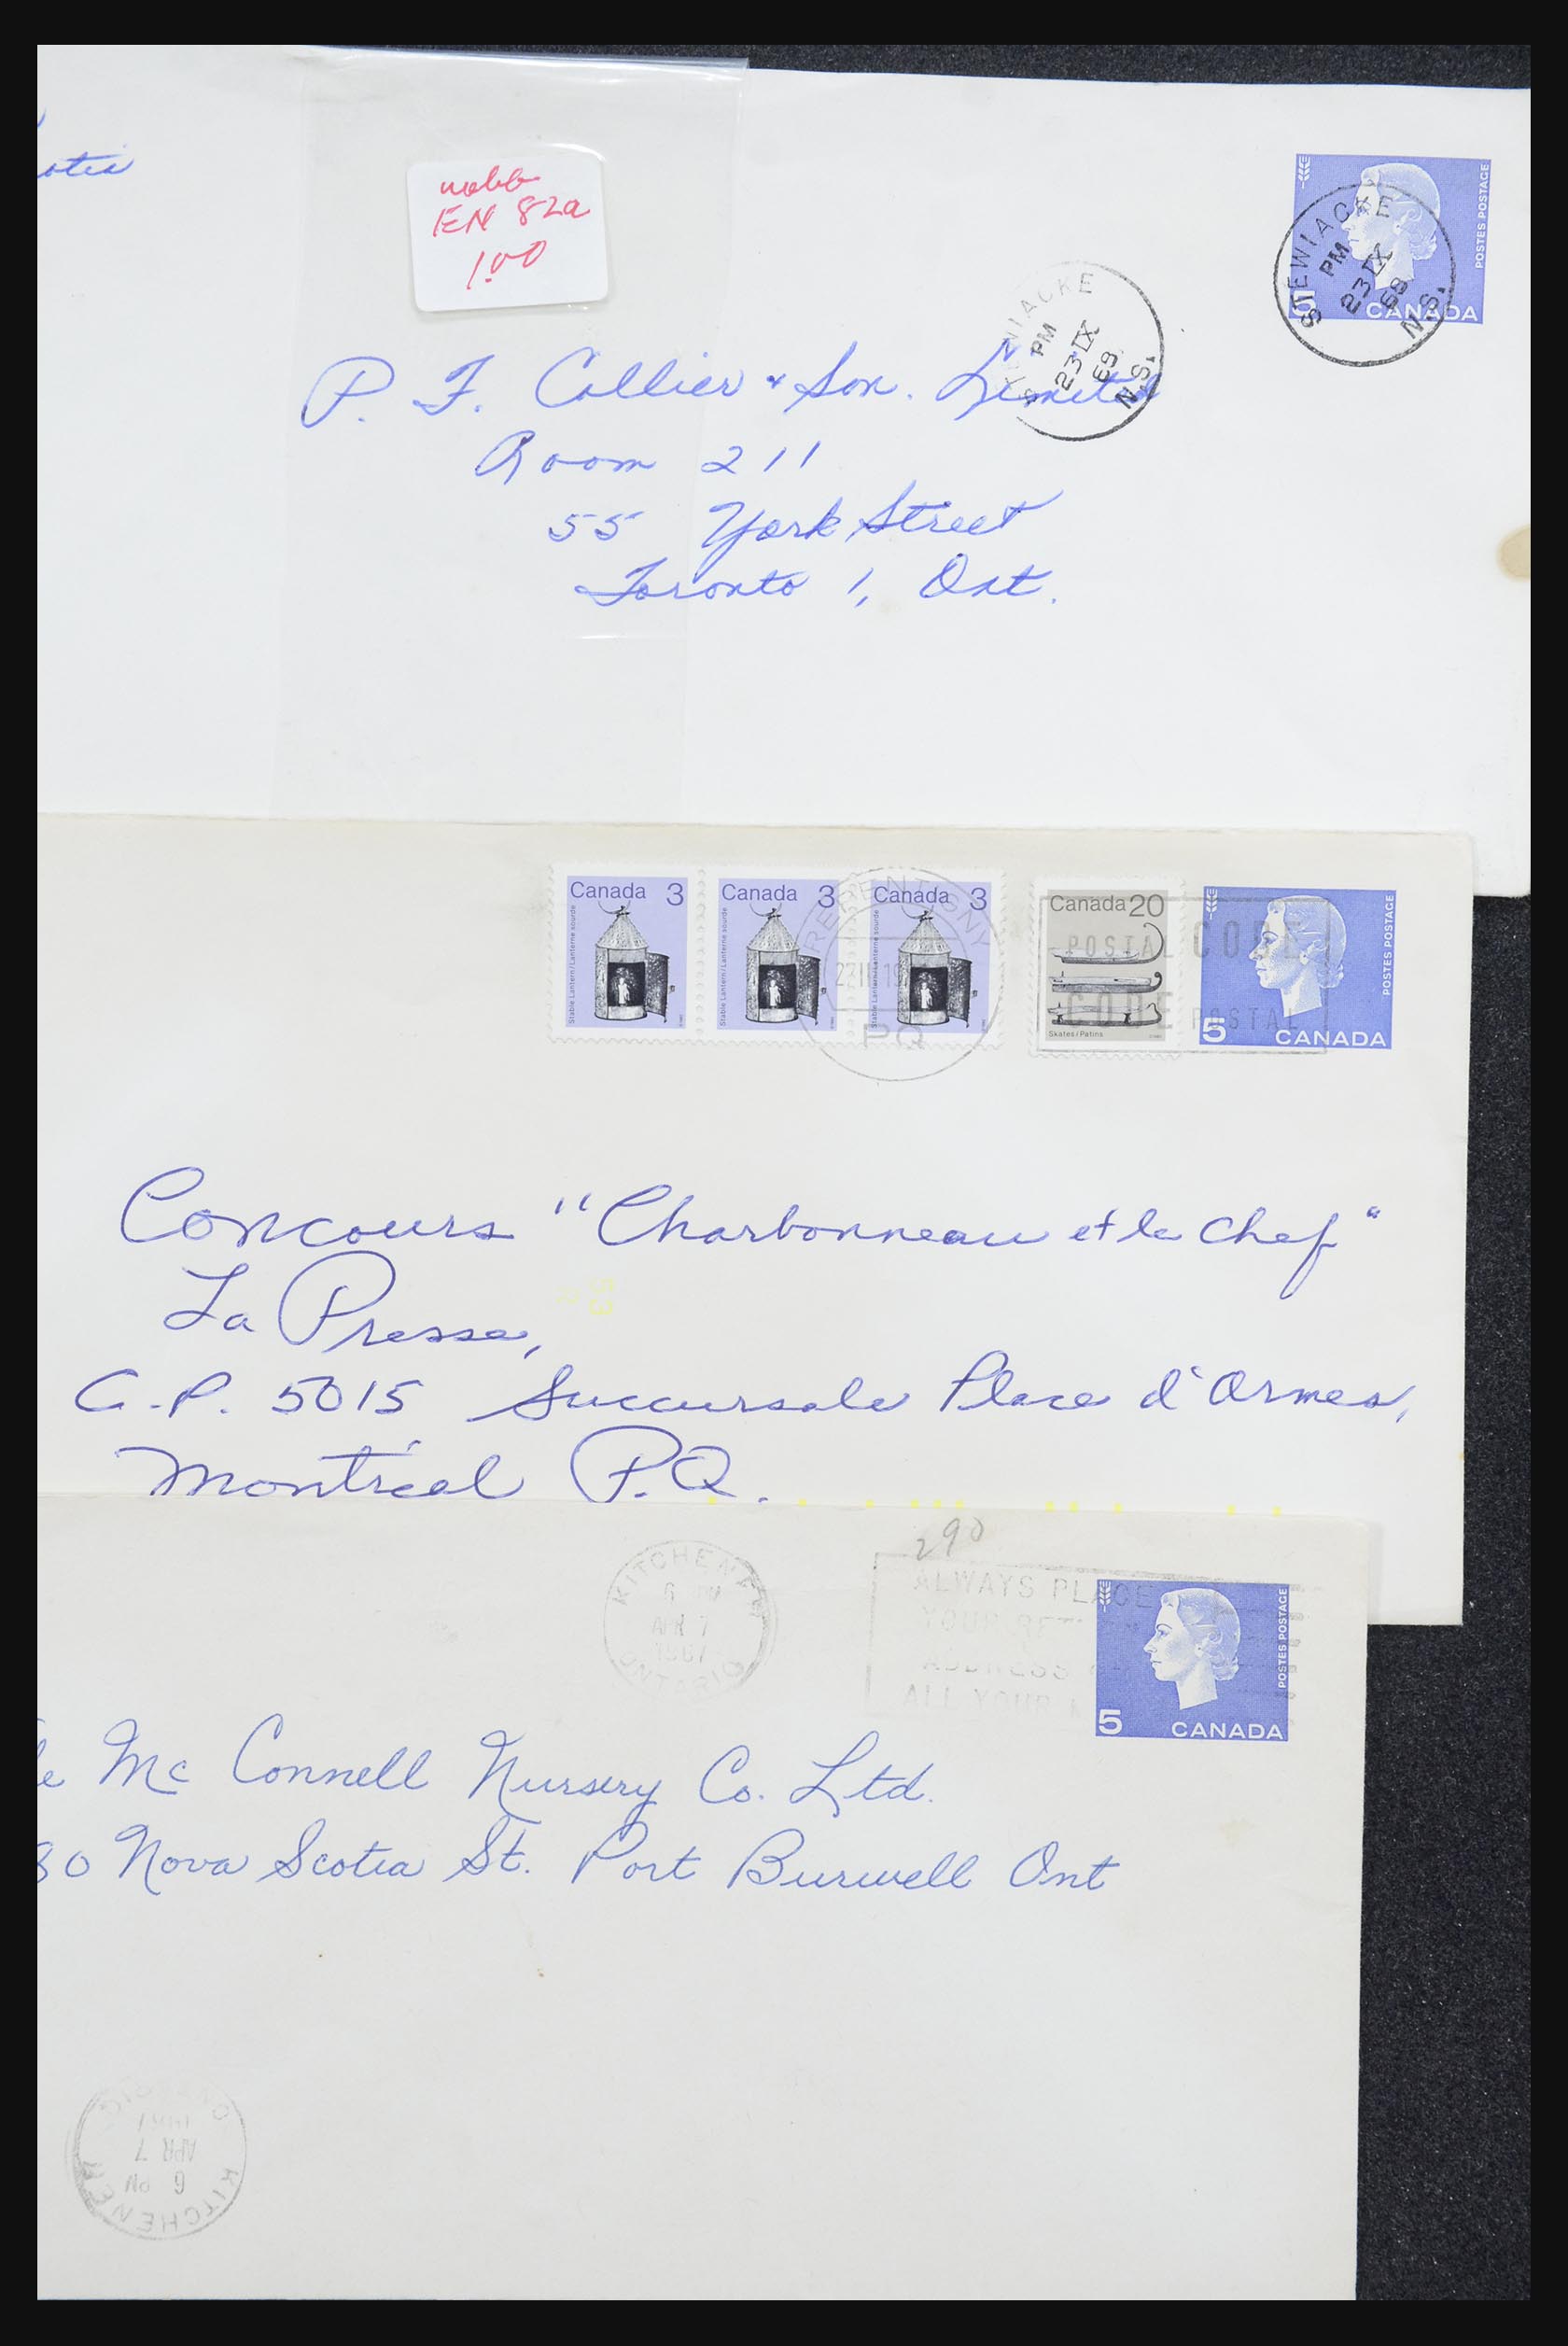 otia
webb
EN 82a
1.00
POSTES POSTAGE
5 CANADA
STEWIACKE
PM
23 IX
69
N.S.
STEWIACKE
PM
23 IX
69
N.S.
P. F. Collier & Son. Limited
Room 211
55 York Street
Toronto 1, Ont.
Canada 3
Stable Lantern / Lanterne sourde
Canada 3
Stable Lantern / Lanterne sourde
Canada 3
Stable Lantern / Lanterne sourde
Canada 20
Skates / Patins
POSTES POSTAGE
5 CANADA
REPENTIGNY
PQ
POSTAL CODE
CODE POSTAL
Concours "Charbonneau et le Chef"
La Presse,
C.P. 5015 Succursale Place d'Armes,
Montréal P.Q.
290
KITCHENER
6 PM
APR 7
1967
ONTARIO
ALWAYS PLACE
YOUR
ADDRESS
ALL YOUR
POSTES POSTAGE
5 CANADA
Mc Connell Nursery Co. Ltd.
30 Nova Scotia St. Port Burwell Ont
KITCHENER
6 PM
APR 7
1967
ONTARIO